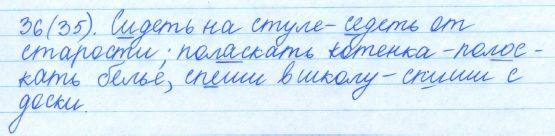 36(35). Сидеть на стуле- седеть от
старости; поласкать котенка -полос-
кать белье, спеши в школу- спиши с
доски.